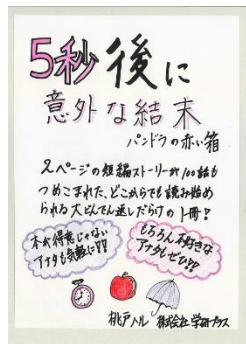 5秒後に
意外な結末
パンドラの赤い箱
2ページの短編ストーリーが100話も
つめこまれた、どこからでも読み始め
られる大どんでん返しだらけの1冊!
本が得意じゃない
アナタも気軽に!!
もちろん本好きな
アナタもぜひ!!
桃戸ハル 株式会社学研プラス